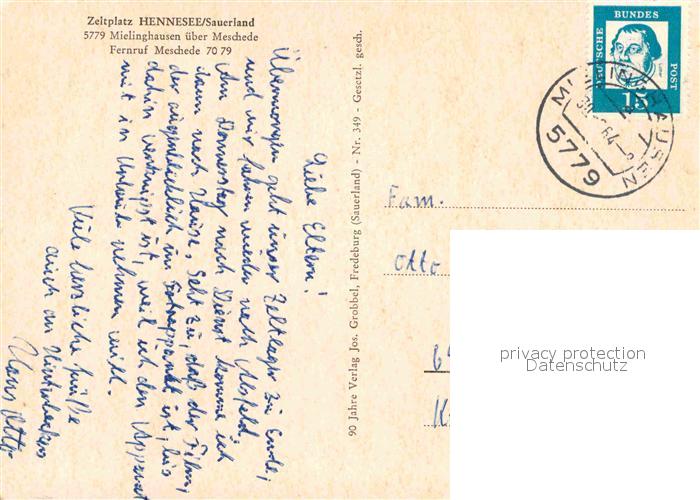 Zeltplatz HENNESEE/Sauerland
5779 Mielinghausen über Meschede
Fernruf Meschede 70 79
Liebe Eltern!
Übermorgen geht unser Zeltlager zu Ende,
und wir fahren wieder nach Alsfeld.
Am Donnerstag nach Dienst komme ich
dann nach Hause. Seht zu, daß der Film,
der augenblicklich im Fotoapparat ist, bis
dahin verknipst ist, weil ich den Apparat
mit in Urlaub nehmen will.
Viele herzliche Grüße
auch an
Hans Otto
90 Jahre Verlag Jos. Grobbel, Fredeburg (Sauerland) - Nr. 349 - Gesetzl. gesch.
DEUTSCHE BUNDES POST
Luther
15
5779
64
Fam.
Otto
privacy protection
Datenschutz